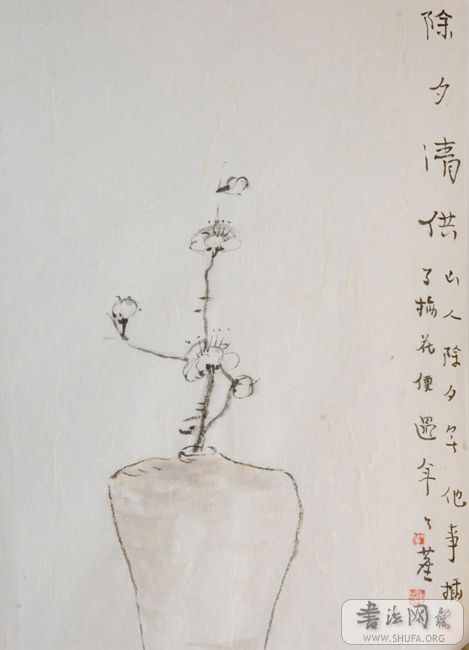 除夕清供
山人除夕无他事插
了梅花便過年 了廬
書法网
WWW.SHUFA.ORG